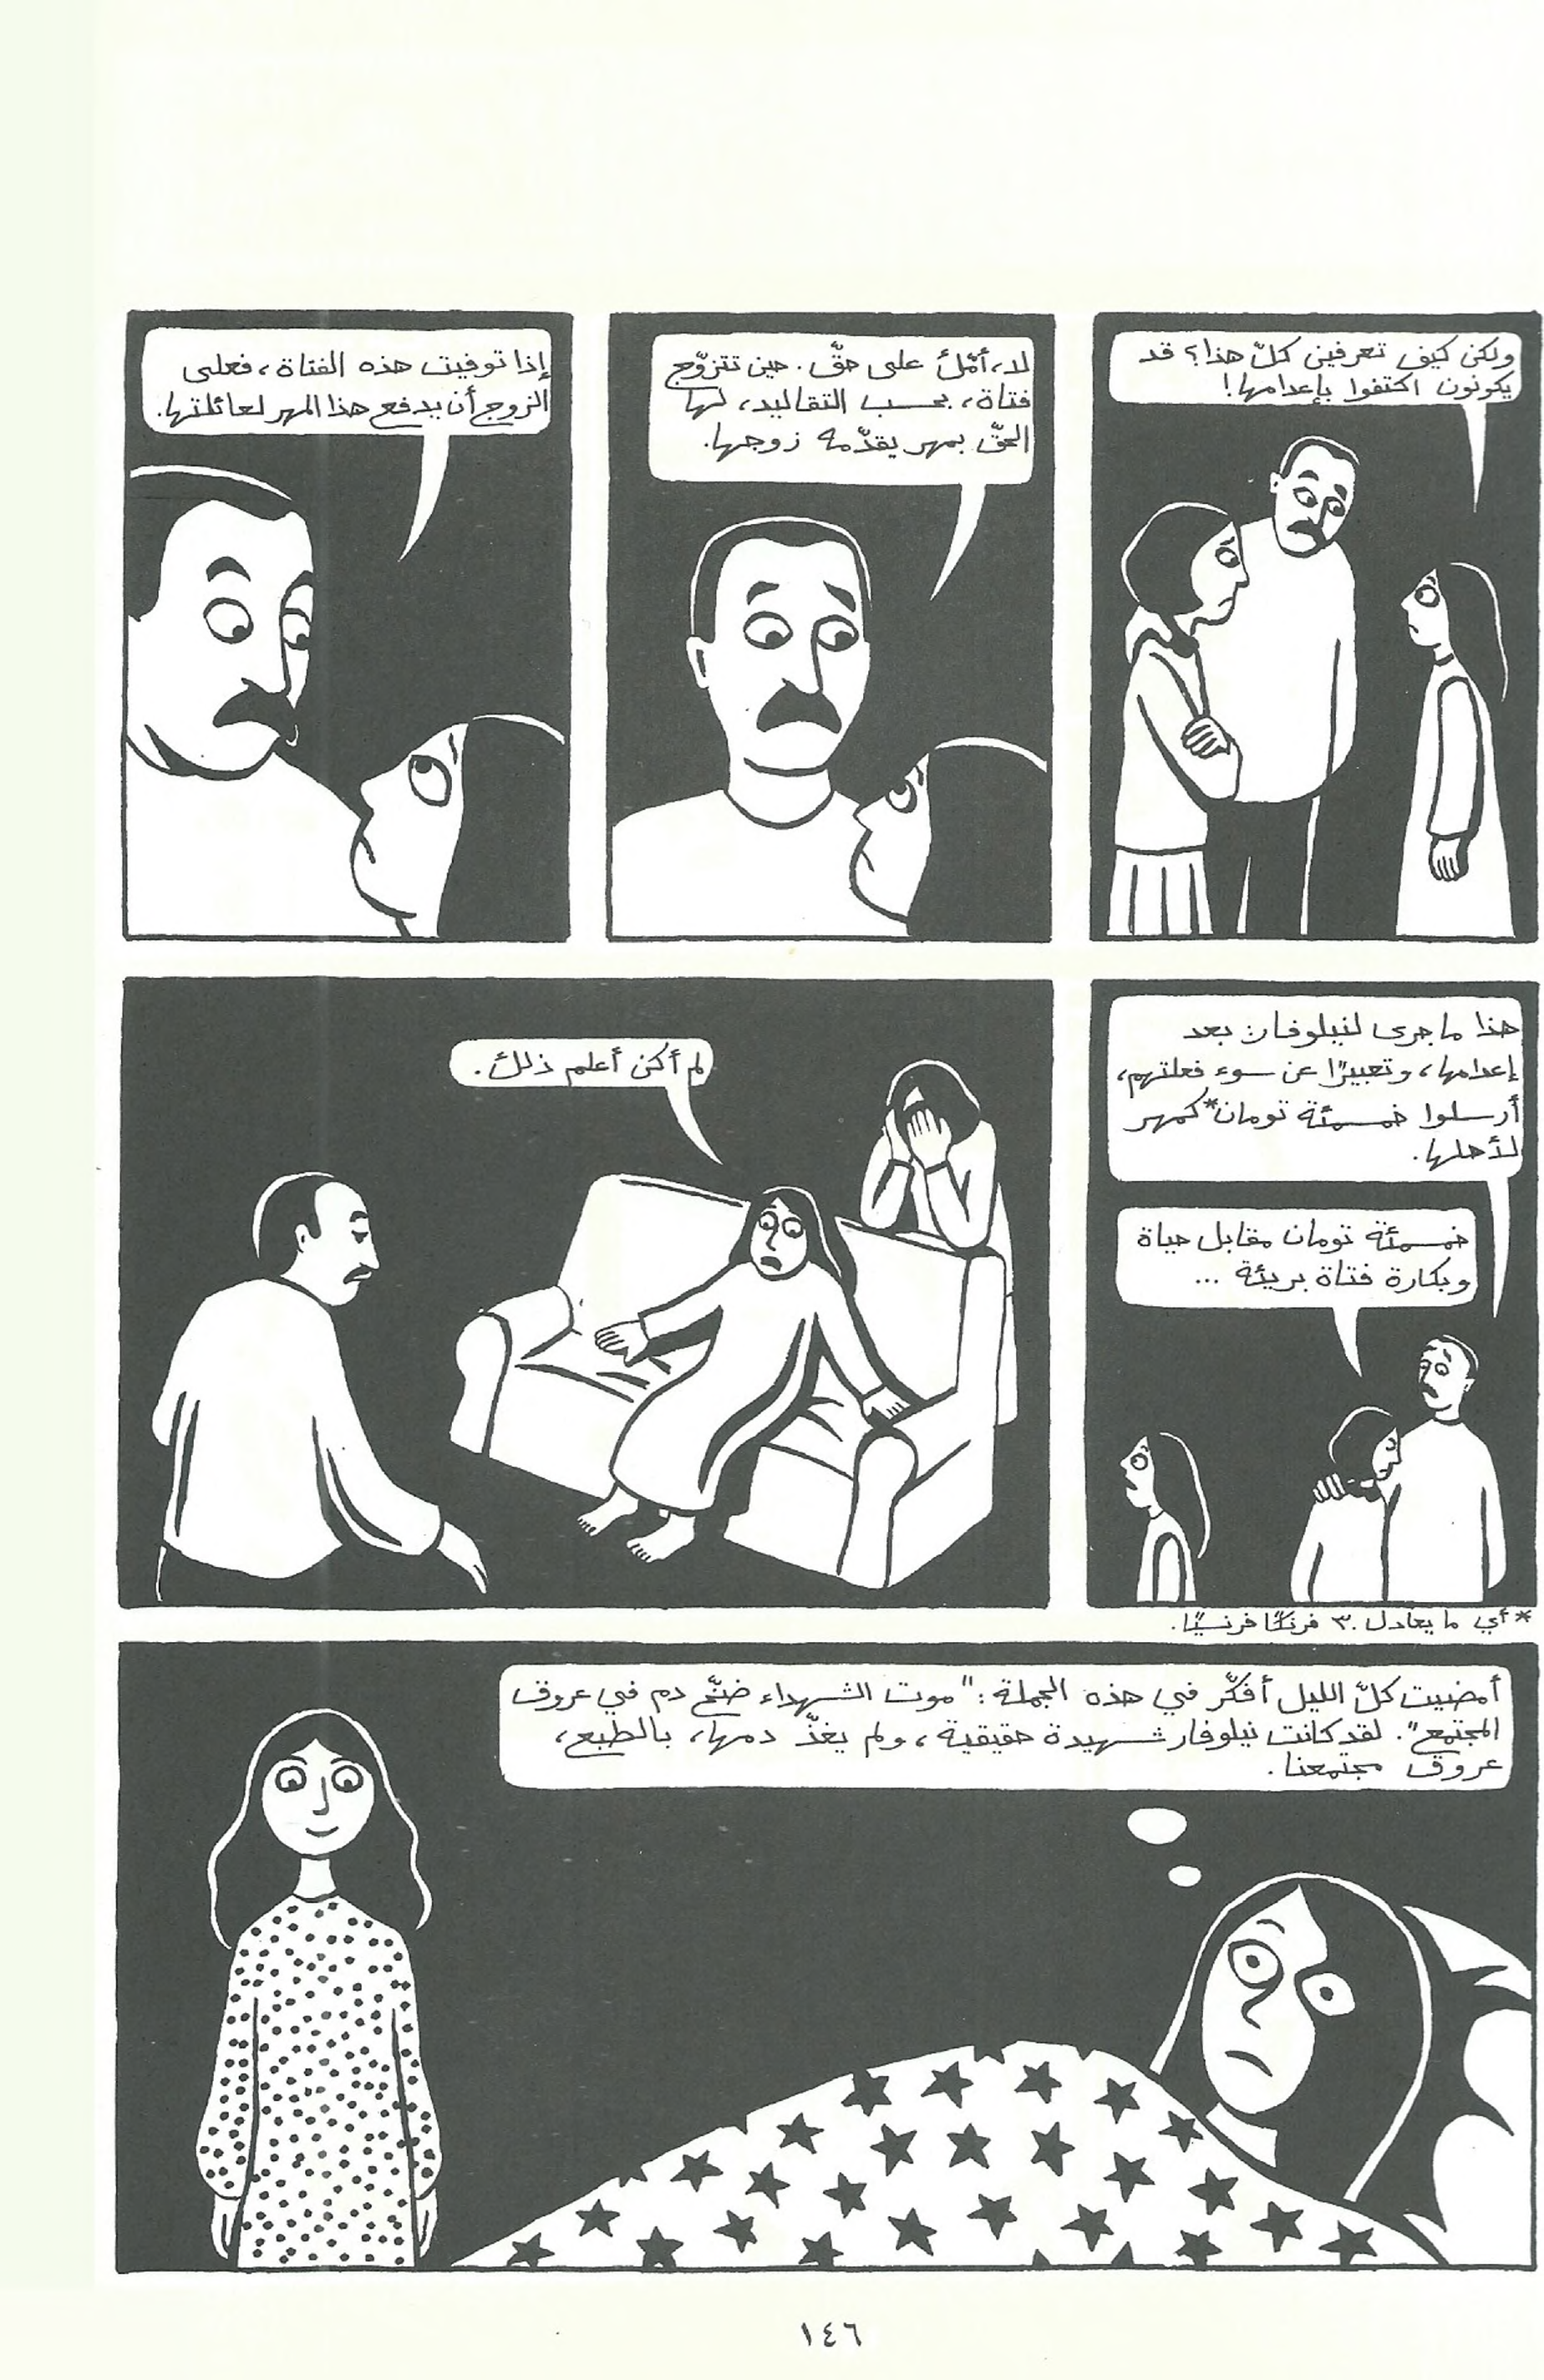 ولكن كيف تعرفين كلّ هذا؟ قد
يكونون اكتفوا بإعدامها!
لا، أمّك على حقّ. حين تتزوّج
فتاة، بحسب التقاليد، لها
الحقّ بمهر يقدّمه زوجها.
إذا توفيت هذه الفتاة، فعلى
الزوج أن يدفع هذا المهر لعائلتها.
هذا ما جرى لنيلوفار: بعد
إعدامها، وتعبيرًا عن سوء فعلتهم،
أرسلوا خمسمئة تومان* كمهر
لأهلها.
خمسمئة تومان مقابل حياة
وبكارة فتاة بريئة ...
لم أكن أعلم ذلك.
*أي ما يعادل ٣٠ فرنكًا فرنسيًا.
أمضيت كلّ الليل أفكّر في هذه الجملة: "موت الشهداء ضخّ دم في عروق
المجتمع". لقد كانت نيلوفار شهيدة حقيقية، ولم يغذّ دمها، بالطبع،
عروق مجتمعنا.
١٤٦